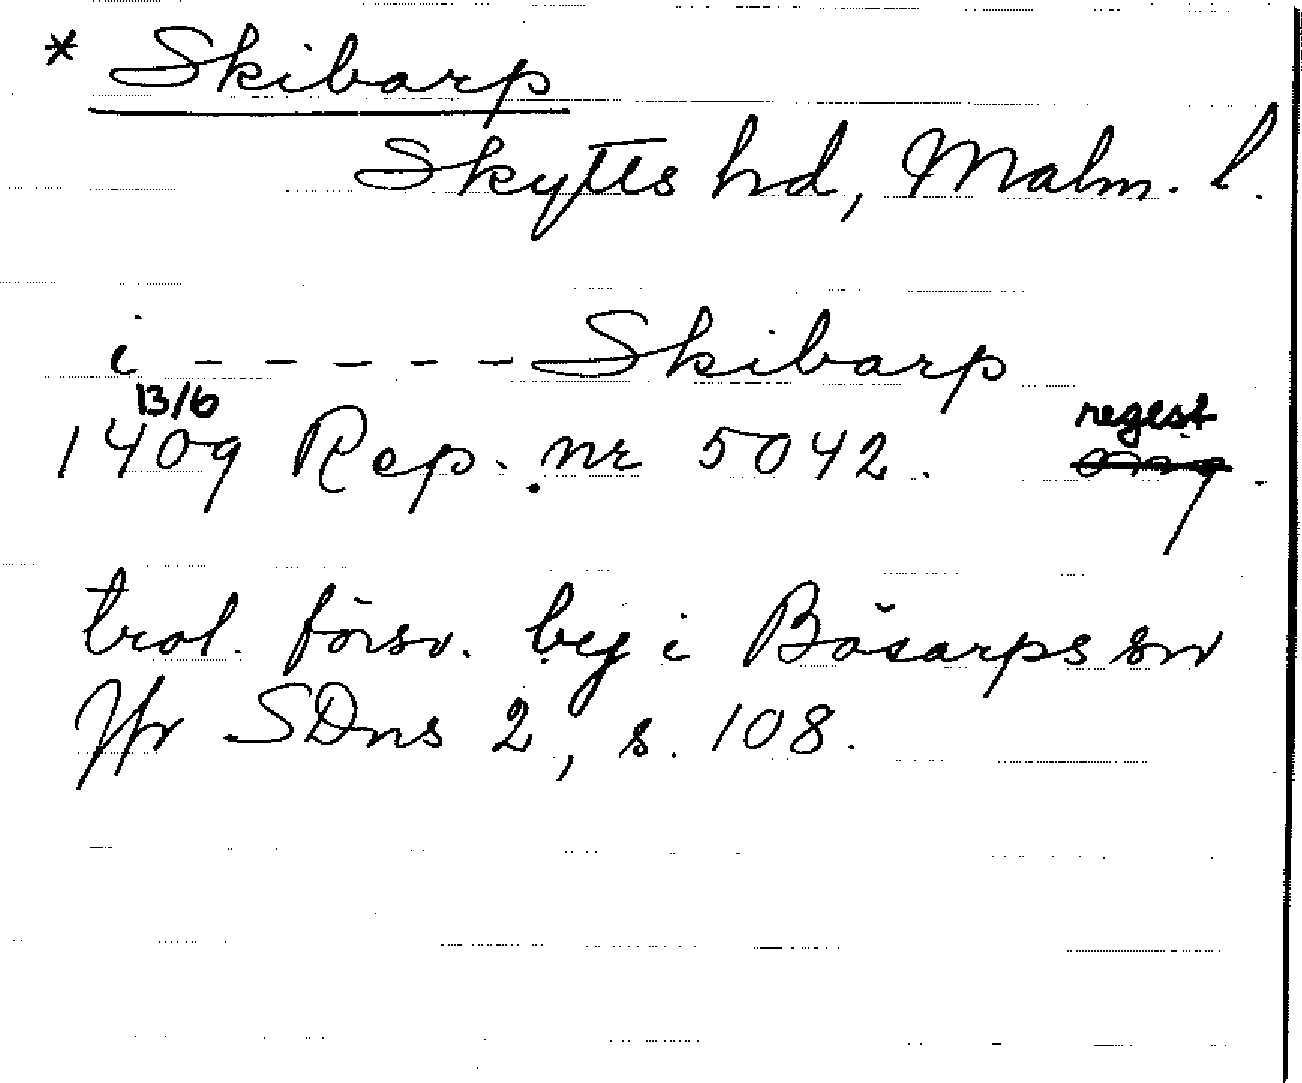 * Skibarp
Skytts hd, Malm. l.
i - - - - - Skibarp
13/6 regest
1409 Rep. nr 5042.
trol. försv. by i Bösarps sn
Jfr SDns 2, s. 108.